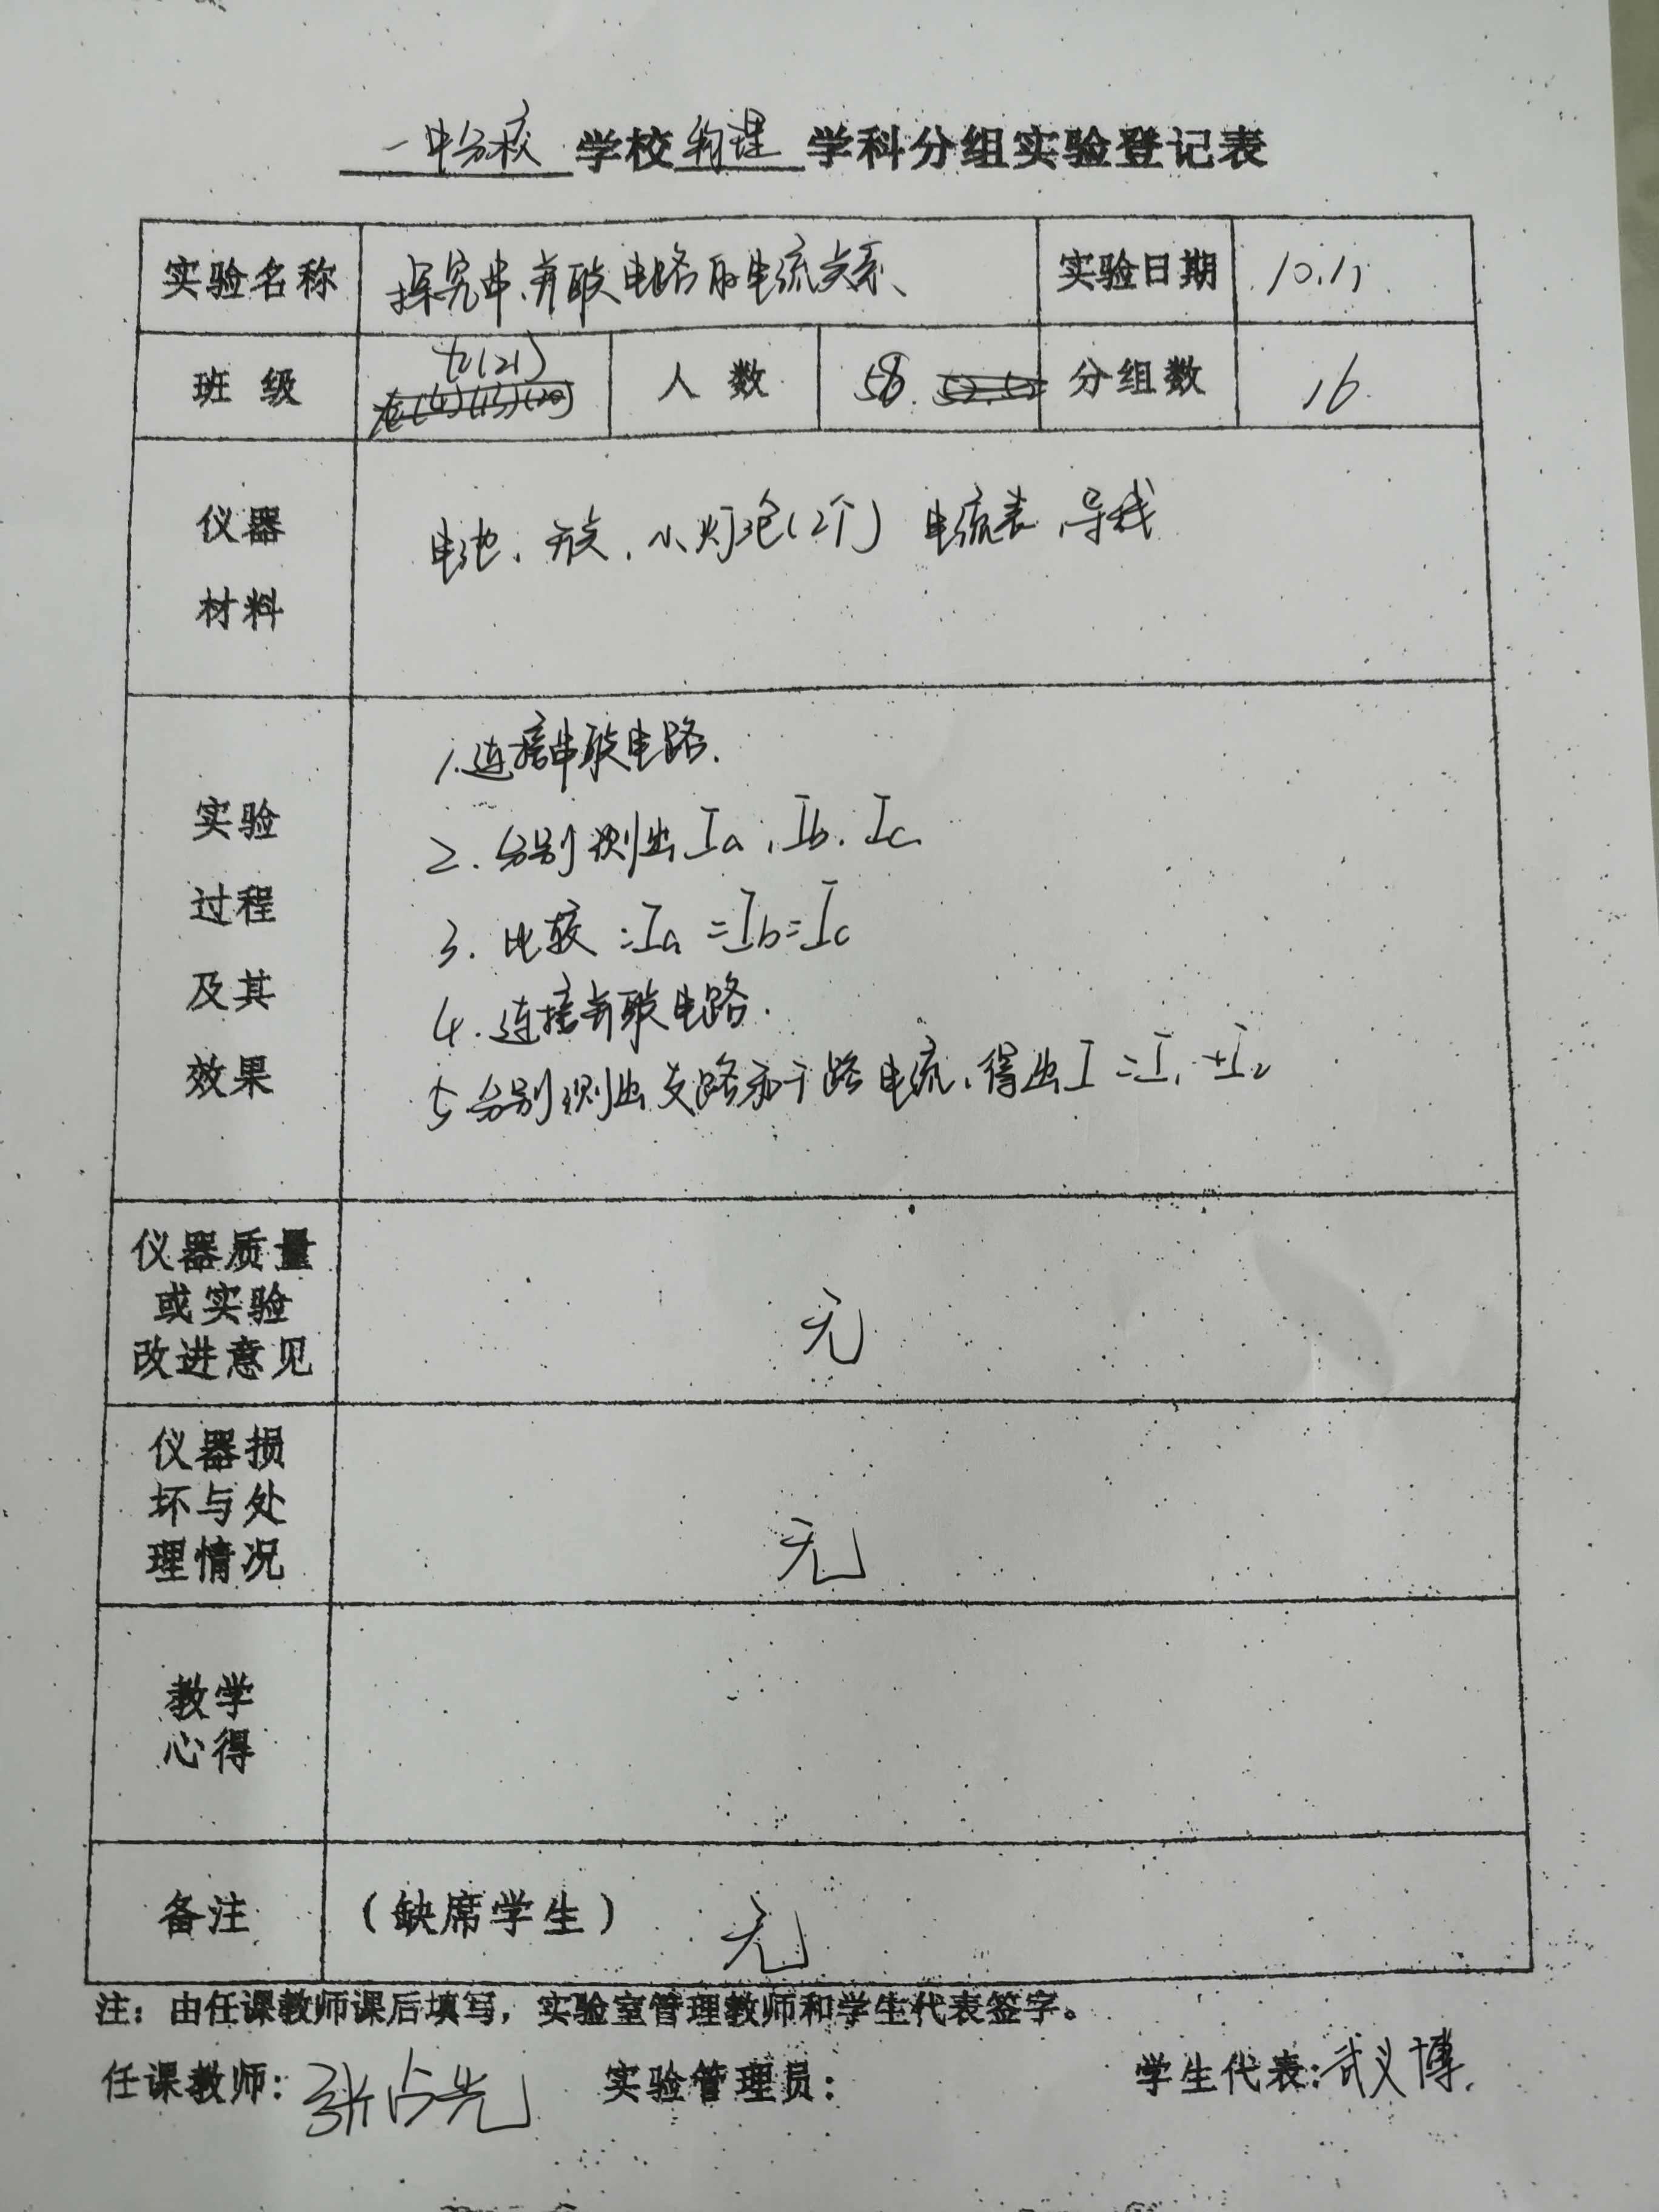 一中分校 学校 物理 学科分组实验登记表
实验名称 探究串、并联电路的电流关系、 实验日期 10.11
班 级 九(21) 人 数 58. 分组数 16
仪器
材料
电池、开关、小灯泡(2个) 电流表、导线
实验
过程
及其
效果
1.连接串联电路.
2.分别测出Ia、Ib、Ic
3.比较:Ia=Ib=Ic
4.连接并联电路.
5.分别测出支路和干路电流,得出I=I₁+I₂
仪器质量
或实验
改进意见
无
仪器损
坏与处
理情况
无
教学
心得
备注 (缺席学生) 无
注：由任课教师课后填写，实验室管理教师和学生代表签字。
任课教师：张占先 实验管理员： 学生代表：武义博.